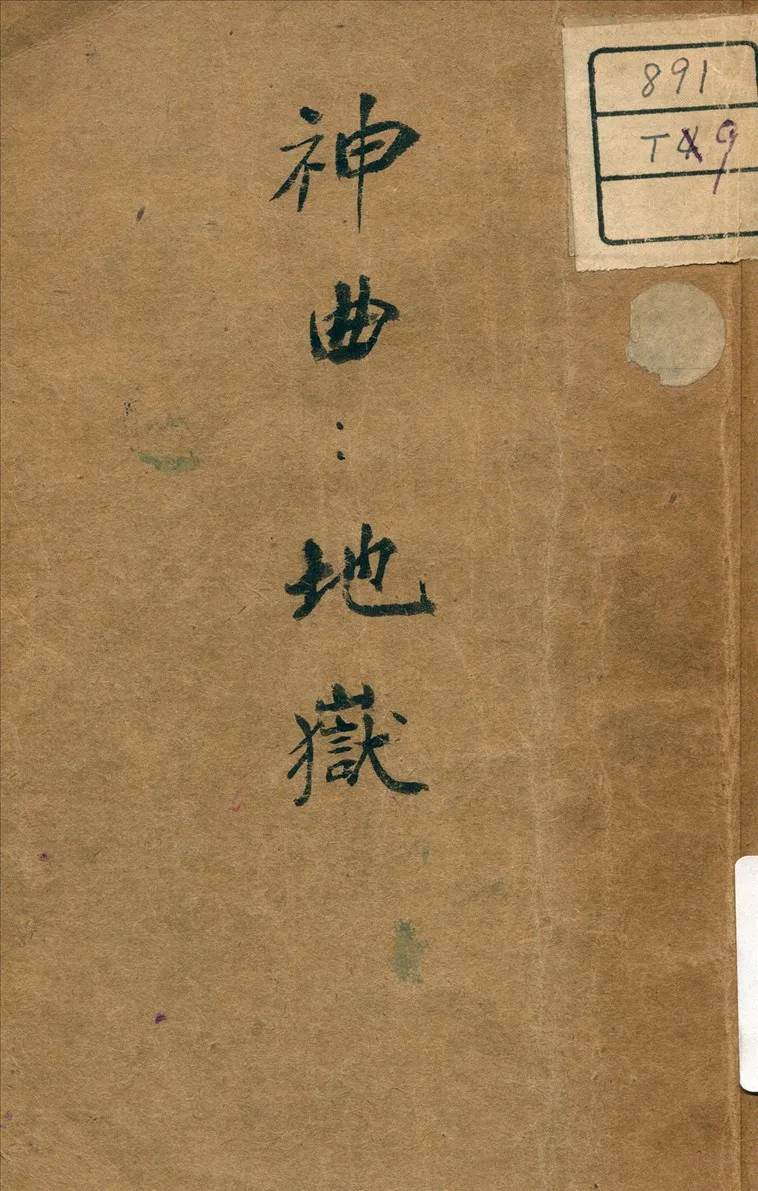 神曲：地獄
891
T49